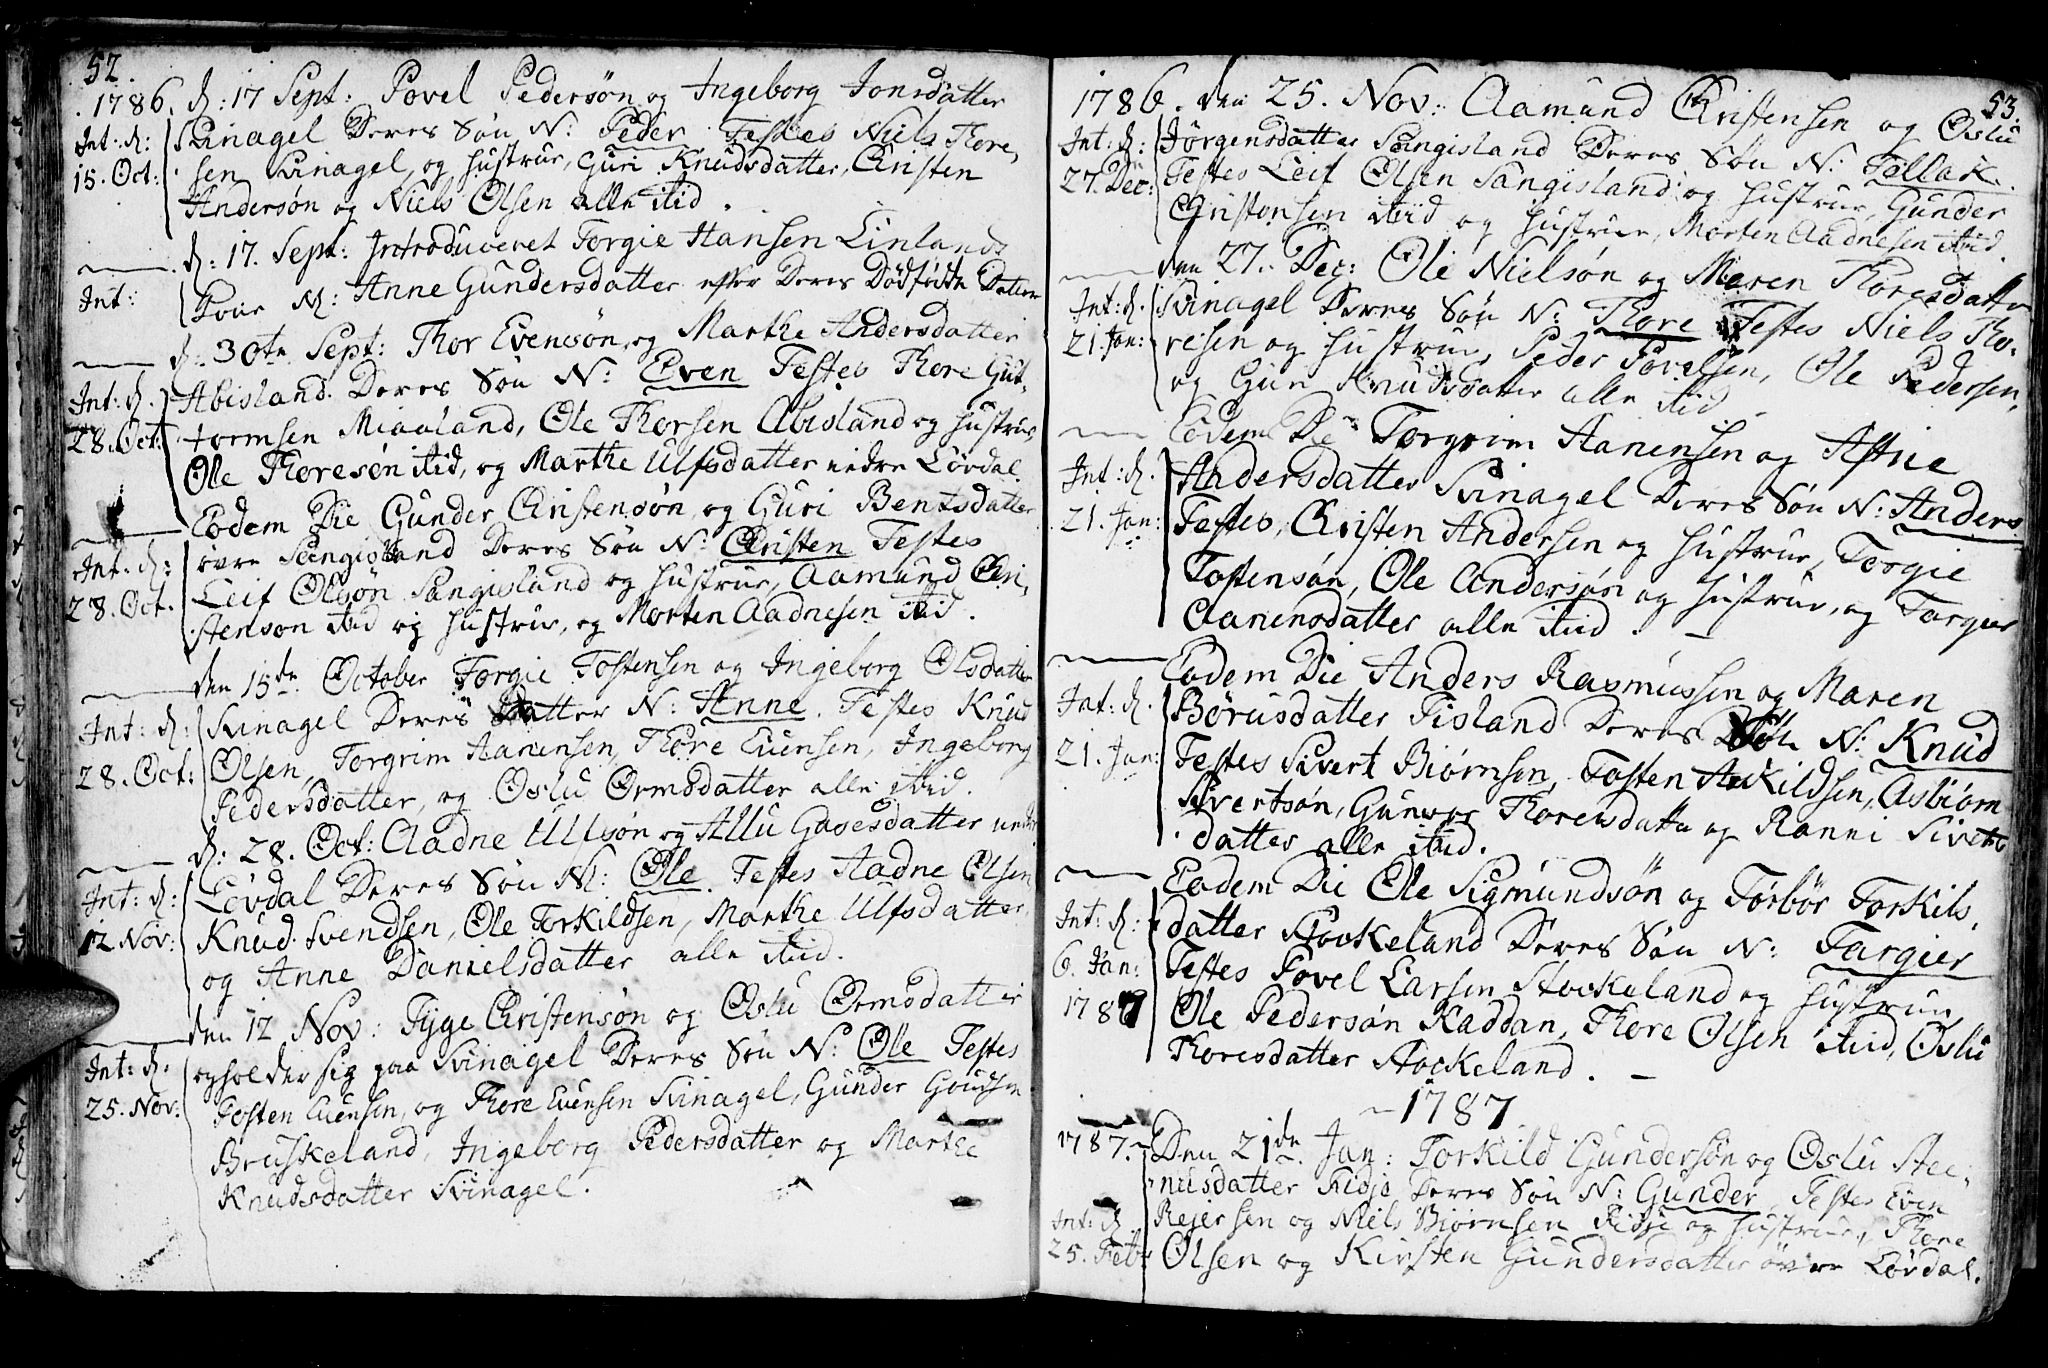 52.
1786. d: 17 Sept: Povel Pedersøn og Ingeborg Jonsdatter
Int: d: Svinagel Deres Søn N: Peder. Testes Niels Thore,
15. Oct: sen Svinagel, og Hustrue, Guri Knudsdatter, Christen
Andersøn og Niels Olsen alle ibid.
d: 17. Sept: Introduceret Torgie Hansen Linlands
Int: Kone N: Anne Gundersdatter efter Deres Dødfødte Datter
d: 30te Sept: Thor Evensøn og Marthe Andersdatter
Int: d. Abisland Deres Søn N: Even Testes Thore Gut-
28. Oct: tormsen Miaaland, Ole Thorsen Abisland og Hustrue
Ole Thoresøn ibid, og Marthe Ulfsdatter nedre Løvdal.
Eodem Die Gunder Christensøn og Guri Bentsdatter
Int: d: øvre Sangisland Deres Søn N: Christen Testes
28. Oct. Leif Olsøn Sangisland og Hustrue, Aamund Chri,
stensøn ibid og Hustrue, og Morten Aadnesen ibid.
den 15de October Torgie Tostensen og Ingeborg Olsdatter
Int: d: Svinagel Deres Datter N: Anne. Testes Knud
28. Oct: Olsen, Torgrim Aanensen, Thore Evensen, Ingeborg
Pedersdatter, og Oslu Ormsdatter alle ibid.
d: 28. Oct: Aadne Ulfsøn og Allu Gavesdatter nedre
Int: d: Løvdal Deres Søn N: Ole. Testes Aadne Olsen
12 Nov: Knud Svendsen, Ole Torkildsen, Marthe Ulfsdatter,
og Anne Danielsdatter alle ibid.
den 12 Nov: Tyge Christensøn og Oslu Ormsdatter
Int: d. opholder sig paa Svinagel Deres Søn N: Ole Testes
25. Nov: Tosten Evensen, og Thore Evensen Svinagel, Gunder
Bruskeland, Ingeborg Pedersdatter og Marthe
Knudsdatter Svinagel.
53.
1786. den 25. Nov: Aamund Christensen og Oslu
Int: d: Jörgensdatter Sangisland Deres Søn N: Tellak.
27. Dec: Testes Leif Olsen Sangisland og Hustrue, Gunder
Christensen ibid og Hustrue, Morten Aadnesen ibid.
den 27. Dec: Ole Nielsøn og Maren Thoresdatter
Int: d. Svinagel Deres Søn N: Thore Testes Niels Tho-
21. Jan: resen og Hustrue, Peder Povelsen, Ole Pedersen,
og Guri Knudsdatter alle ibid.
Eodem Die Torgrim Aanensen og Astrie
Int: d. Andersdatter Svinagel Deres Søn N: Anders
21. Jan: Testes, Christen Andersen og Hustrue, Torgie
Tostensøn, Ole Andersøn og Hustrue, og Targier
Aanensdatter alle ibid.
Eodem Die Anders Rasmussen og Maren
Int: d. Børusdatter Fisland Deres Søn N: Knud
21. Jan: Testes Sivert Biørnsen, Tosten Askildsen, Asbiørn
Sivertsøn, Gunvor Thoresdatter og Ranni Siverts
datter alle ibid.
Eodem Die Ole Sigmundsøn og Torbør Torkils,
Int: d: datter Stockeland Deres Søn N: Targier
6. Jan: Testes Povel Larsen Stockeland og Hustrue,
1787 Ole Pedersøn Kaddan, Thore Olsen ibid, Oslu
Thoresdatter Stockeland.
1787
1787. Den 21de Jan: Torkild Gundersøn og Oslu Stee-
nusdatter Risje Deres Søn N: Gunder. Testes Even
Int: d. Rejersen og Niels Biørnsen Risje og Hustrue, Thore
25. Febr Olsen og Kirsten Gundersdatter øvre Løvdal.